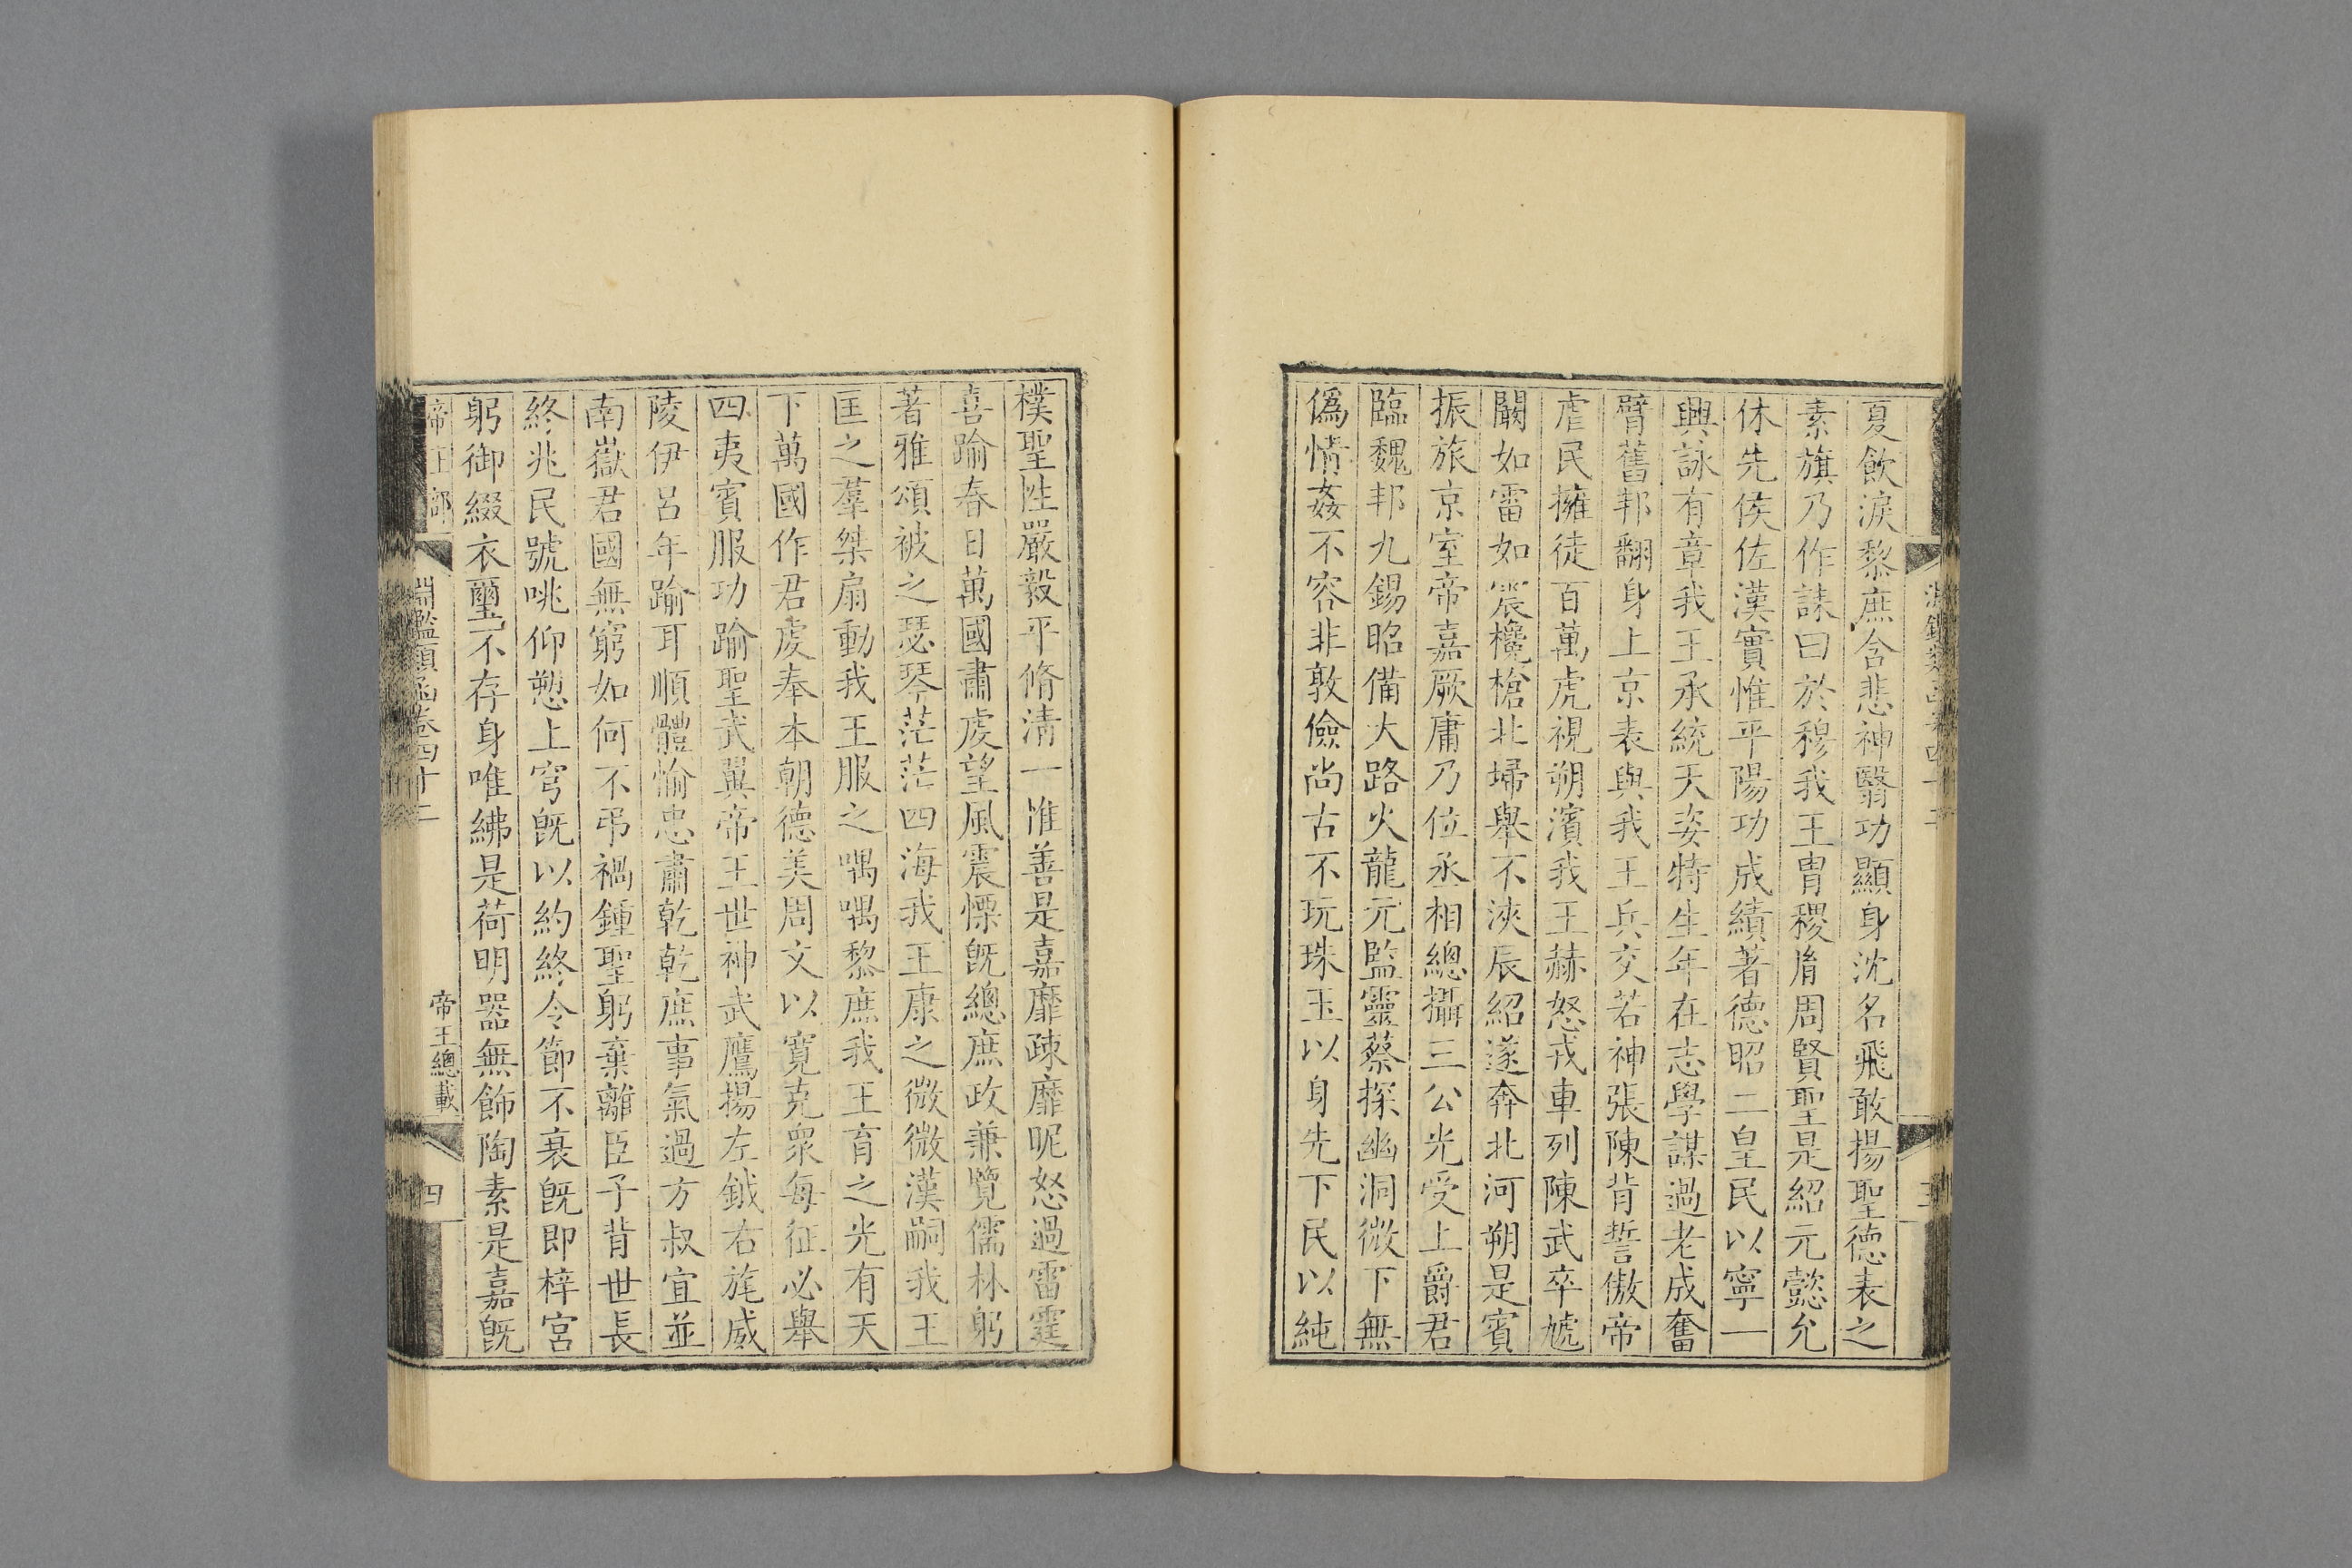 夏飲淚黎庶含悲神翳功顯身沈名飛敢揚聖德表之
素旗乃作誄曰於穆我王胄稷胤周賢聖是紹元懿允
休先侯佐漢實惟平陽功成績著德昭二皇民以寧一
興詠有章我王承統天姿特生年在志學謀過老成奮
臂舊邦翻身上京表與我王兵交若神張陳背誓傲帝
虐民擁徒百萬虎視朔濱我王赫怒戎車列陳武卒虓
闞如雷如震欃槍北埽舉不浹辰紹遂奔北河朔是賓
振旅京室帝嘉厥庸乃位丞相總攝三公光受上爵君
臨魏邦九錫昭備大路火龍元監靈蔡探幽洞微下無
僞情姦不容非敦儉尚古不玩珠玉以身先下民以純
樸聖性嚴毅平脩清一惟善是嘉靡疎靡昵怒過雷霆
喜踰春日萬國肅虔望風震慄旣總庶政兼覽儒林躬
著雅頌被之瑟琴茫茫四海我王康之微微漢嗣我王
匡之羣桀扇動我王服之喁喁黎庶我王育之光有天
下萬國作君虔奉本朝德美周文以寛克衆每征必舉
四夷賓服功踰聖武翼帝王世神武鷹揚左鉞右旄威
陵伊呂年踰耳順體愉忠肅乾乾庶事氣過方叔宜並
南嶽君國無窮如何不弔禍鍾聖躬棄離臣子背世長
終兆民號咷仰愬上穹旣以約終令節不衰旣即梓宮
躬御綴衣璽不存身唯紼是荷明器無飾陶素是嘉旣
帝王部 淵鑑類函卷四十二 帝王總載 四